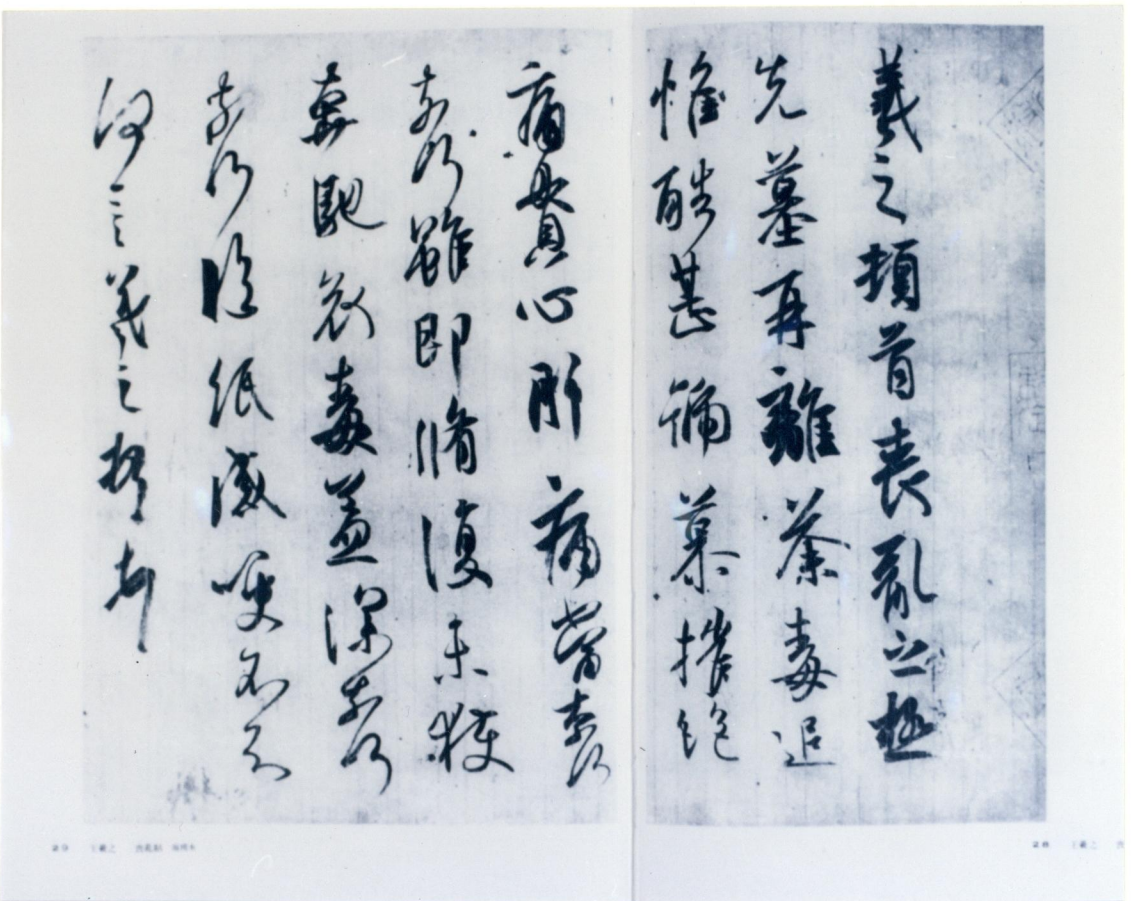 羲之頓首喪亂之極
先墓再離荼毒追
惟酷甚號慕摧絕
痛貫心肝痛當奈何
奈何雖即脩復未獲
奔馳哀毒益深奈何
奈何臨紙感哽不知
何言羲之頓首頓首
王羲之
王羲之 喪亂帖